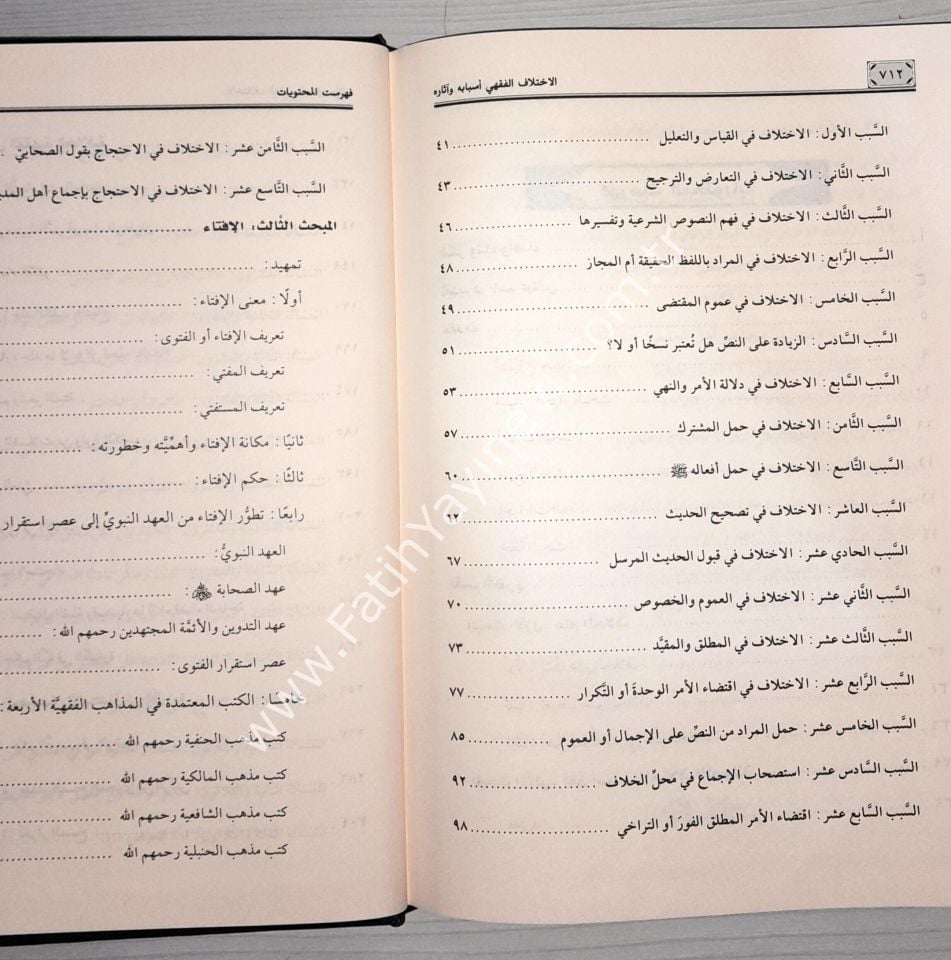 ٧١٢
الاختلاف الفقهي أسبابه وآثاره
السَّبب الأول: الاختلاف في القياس والتعليل ........ ٤١
السَّبب الثَّاني: الاختلاف في التعارض والترجيح ........ ٤٣
السَّبب الثالث: الاختلاف في فهم النصوص الشرعية وتفسيرها ........ ٤٦
السَّبب الرَّابع: الاختلاف في المراد باللفظ الحقيقة أم المجاز ........ ٤٨
السَّبب الخامس: الاختلاف في عموم المقتضى ........ ٤٩
السَّبب السَّادس: الزيادة على النصّ هل تُعتبر نسخًا أو لا؟ ........ ٥١
السَّبب السَّابع: الاختلاف في دلالة الأمر والنهي ........ ٥٣
السَّبب الثَّامن: الاختلاف في حمل المشترك ........ ٥٧
السَّبب التَّاسع: الاختلاف في حمل أفعاله ﷺ ........ ٦٠
السَّبب العاشر: الاختلاف في تصحيح الحديث ........ ٦٢
السَّبب الحادي عشر: الاختلاف في قبول الحديث المرسل ........ ٦٧
السَّبب الثَّاني عشر: الاختلاف في العموم والخصوص ........ ٧٠
السَّبب الثَّالث عشر: الاختلاف في المطلق والمقيَّد ........ ٧٣
السَّبب الرَّابع عشر: الاختلاف في اقتضاء الأمر الوحدةَ أو التَّكرار ........ ٧٧
السَّبب الخامس عشر: حمل المراد من النصِّ على الإجمال أو العموم ........ ٨٥
السَّبب السَّادس عشر: استصحاب الإجماع في محلِّ الخلاف ........ ٩٢
السَّبب السَّابع عشر: اقتضاء الأمر المطلق الفورَ أو التراخي ........ ٩٨
فهرست المحتويات
السَّبب الثَّامن عشر: الاختلاف في الاحتجاج بقول الصحابيّ
السَّبب التَّاسع عشر: الاختلاف في الاحتجاج بإجماع أهل
المبحث الثَّالث: الإفتاء ........
تمهيد: ........
أولًا: معنى الإفتاء: ........
تعريف الإفتاء أو الفتوى: ........
تعريف المفتي: ........
تعريف المستفتي: ........
ثانيًا: مكانة الإفتاء وأهمِّيَّته وخطورته: ........
ثالثًا: حكم الإفتاء: ........
رابعًا: تطوُّر الإفتاء من العهد النبويِّ إلى عصر استقرار
العهد النبويُّ: ........
عهد الصحابة ﷺ: ........
عهد التدوين والأئمَّة المجتهدين رحمهم الله: ........
عصر استقرار الفتوى: ........
خامسًا: الكتب المعتمدة في المذاهب الفقهيَّة الأربعة:
كتب مذهب الحنفية رحمهم الله ........
كتب مذهب المالكية رحمهم الله ........
كتب مذهب الشافعية رحمهم الله ........
كتب مذهب الحنبلية رحمهم الله ........
www.FatihYayinevi.com.tr